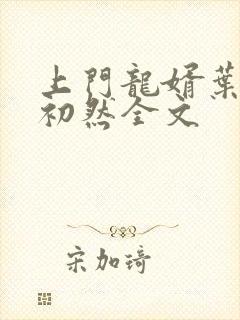 上門龍婿葉
初然全文
宋加琦